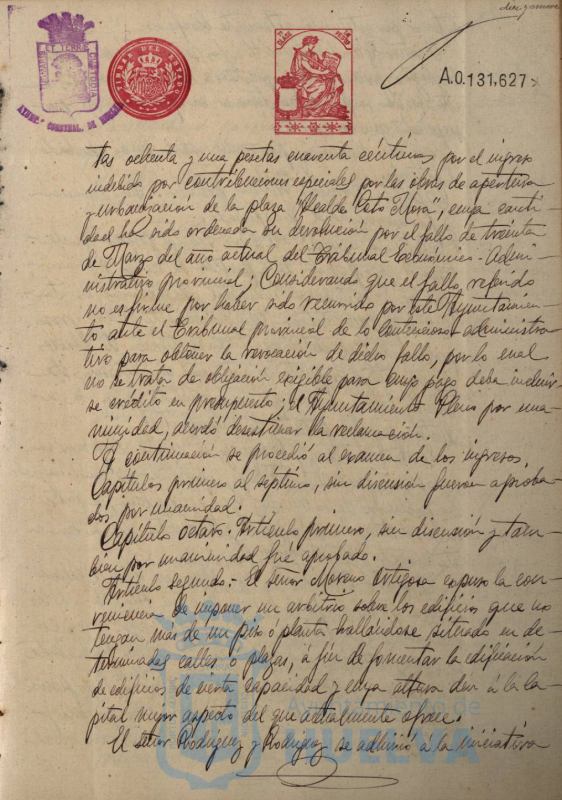 diez y nueve
PORTUS MARIS ET TERRE CUSTODIA
AYUNT.º CONSTNAL. DE HUELVA
TIMBRE DEL ESTADO
A.0.131,627
tas ochenta y una pesetas cuarenta céntimos por el ingreso
indebido por contribuciones especiales por las obras de apertura
y urbanización de la plaza "Alcalde Coto Mora", cuya canti-
dad ha sido ordenada su devolución por el fallo de treinta
de Marzo del año actual del Tribunal Económico-Admi-
nistrativo provincial; Considerando que el fallo referido
no es firme por haber sido recurrido por este Ayuntamien-
to ante el Tribunal provincial de lo Contencioso-administra-
tivo para obtener la revocación de dicho fallo, por lo cual
no se trata de obligación exigible para cuyo pago deba incluir-
se crédito en presupuesto; el Ayuntamiento Pleno por una-
nimidad, acordó desestimar la reclamación.
Y continuación se procedió al examen de los ingresos.
Capítulos primero al séptimo, sin discusión fueron aproba-
dos por unanimidad.
Capítulo octavo. Artículo primero, sin discusión y tam-
bién por unanimidad fué aprobado.
Artículo segundo.- El señor Moreno Ortigosa expuso la con-
veniencia de imponer un arbitrio sobre los edificios que no
tengan más de un piso ó planta hallándose situado en de-
terminadas calles o plazas, á fin de fomentar la edificación
de edificios de cierta capacidad y cuya altura den á la ca-
pital mejor aspecto del que actualmente ofrece.
El señor Rodríguez y Rodríguez se adhirió á la iniciativa
Ayuntamiento de
HUELVA